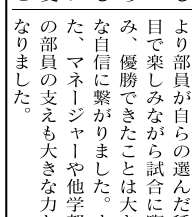 より部員が自らの選んだ種
目で楽しみながら試合に臨
み、優勝できたことは大き
な自信に繋がりました。ま
た、マネージャーや他学部
の部員の支えも大きな力と
なりました。